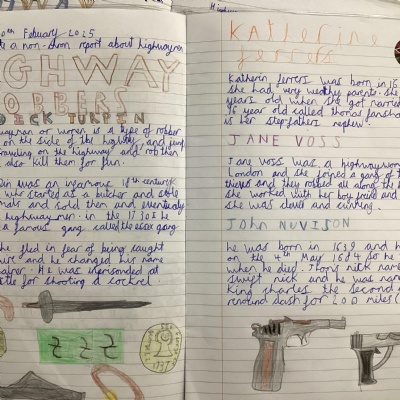 0th Febuary 2025
te a non-chron report about highwaymen
HIGHWAY
ROBBERS
DICK TURPIN
or women is a type of robber
on the side of the highway, and jump
travelling on the highway and rob them
also kill them for fun.
was an 18th century
who started as a butcher and stole
mals and sold them and eventualy
highwaymen. in the 1730s he
a famous gang called the essex gang
he fled in fear of being caught
and he changed his name
palmer. He was
stle for shooting a cockrel.
Katherine
ferriers
Katherin ferrers was born in 16
she had very wealthy parents. she
years old when she got married
16 year old called thomas fanshaw
is her stepfathers nephew.
JANE VOSS
Jane voss was a highwaywom
London and she joined a gang of
thieves and they robbed all along the
she worked with her boy friend and
she was clever and cunning.
John NUVISON
he was born in 1639 and h
on the 4th May 1684 so he
when he died. Jhons nick name
swift nick and he was nam
king charles the second
renound dash for 200 miles